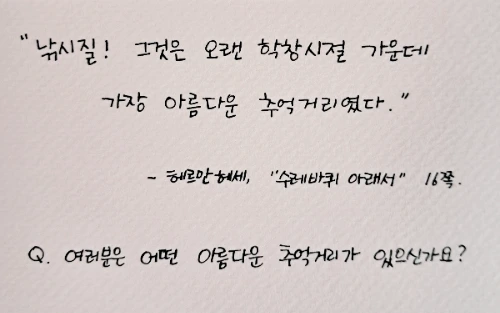 "낚시질! 그것은 오랜 학창시절 가운데
가장 아름다운 추억거리였다."
- 헤르만헤세, "수레바퀴 아래서" 16쪽.
Q. 여러분은 어떤 아름다운 추억거리가 있으신가요?